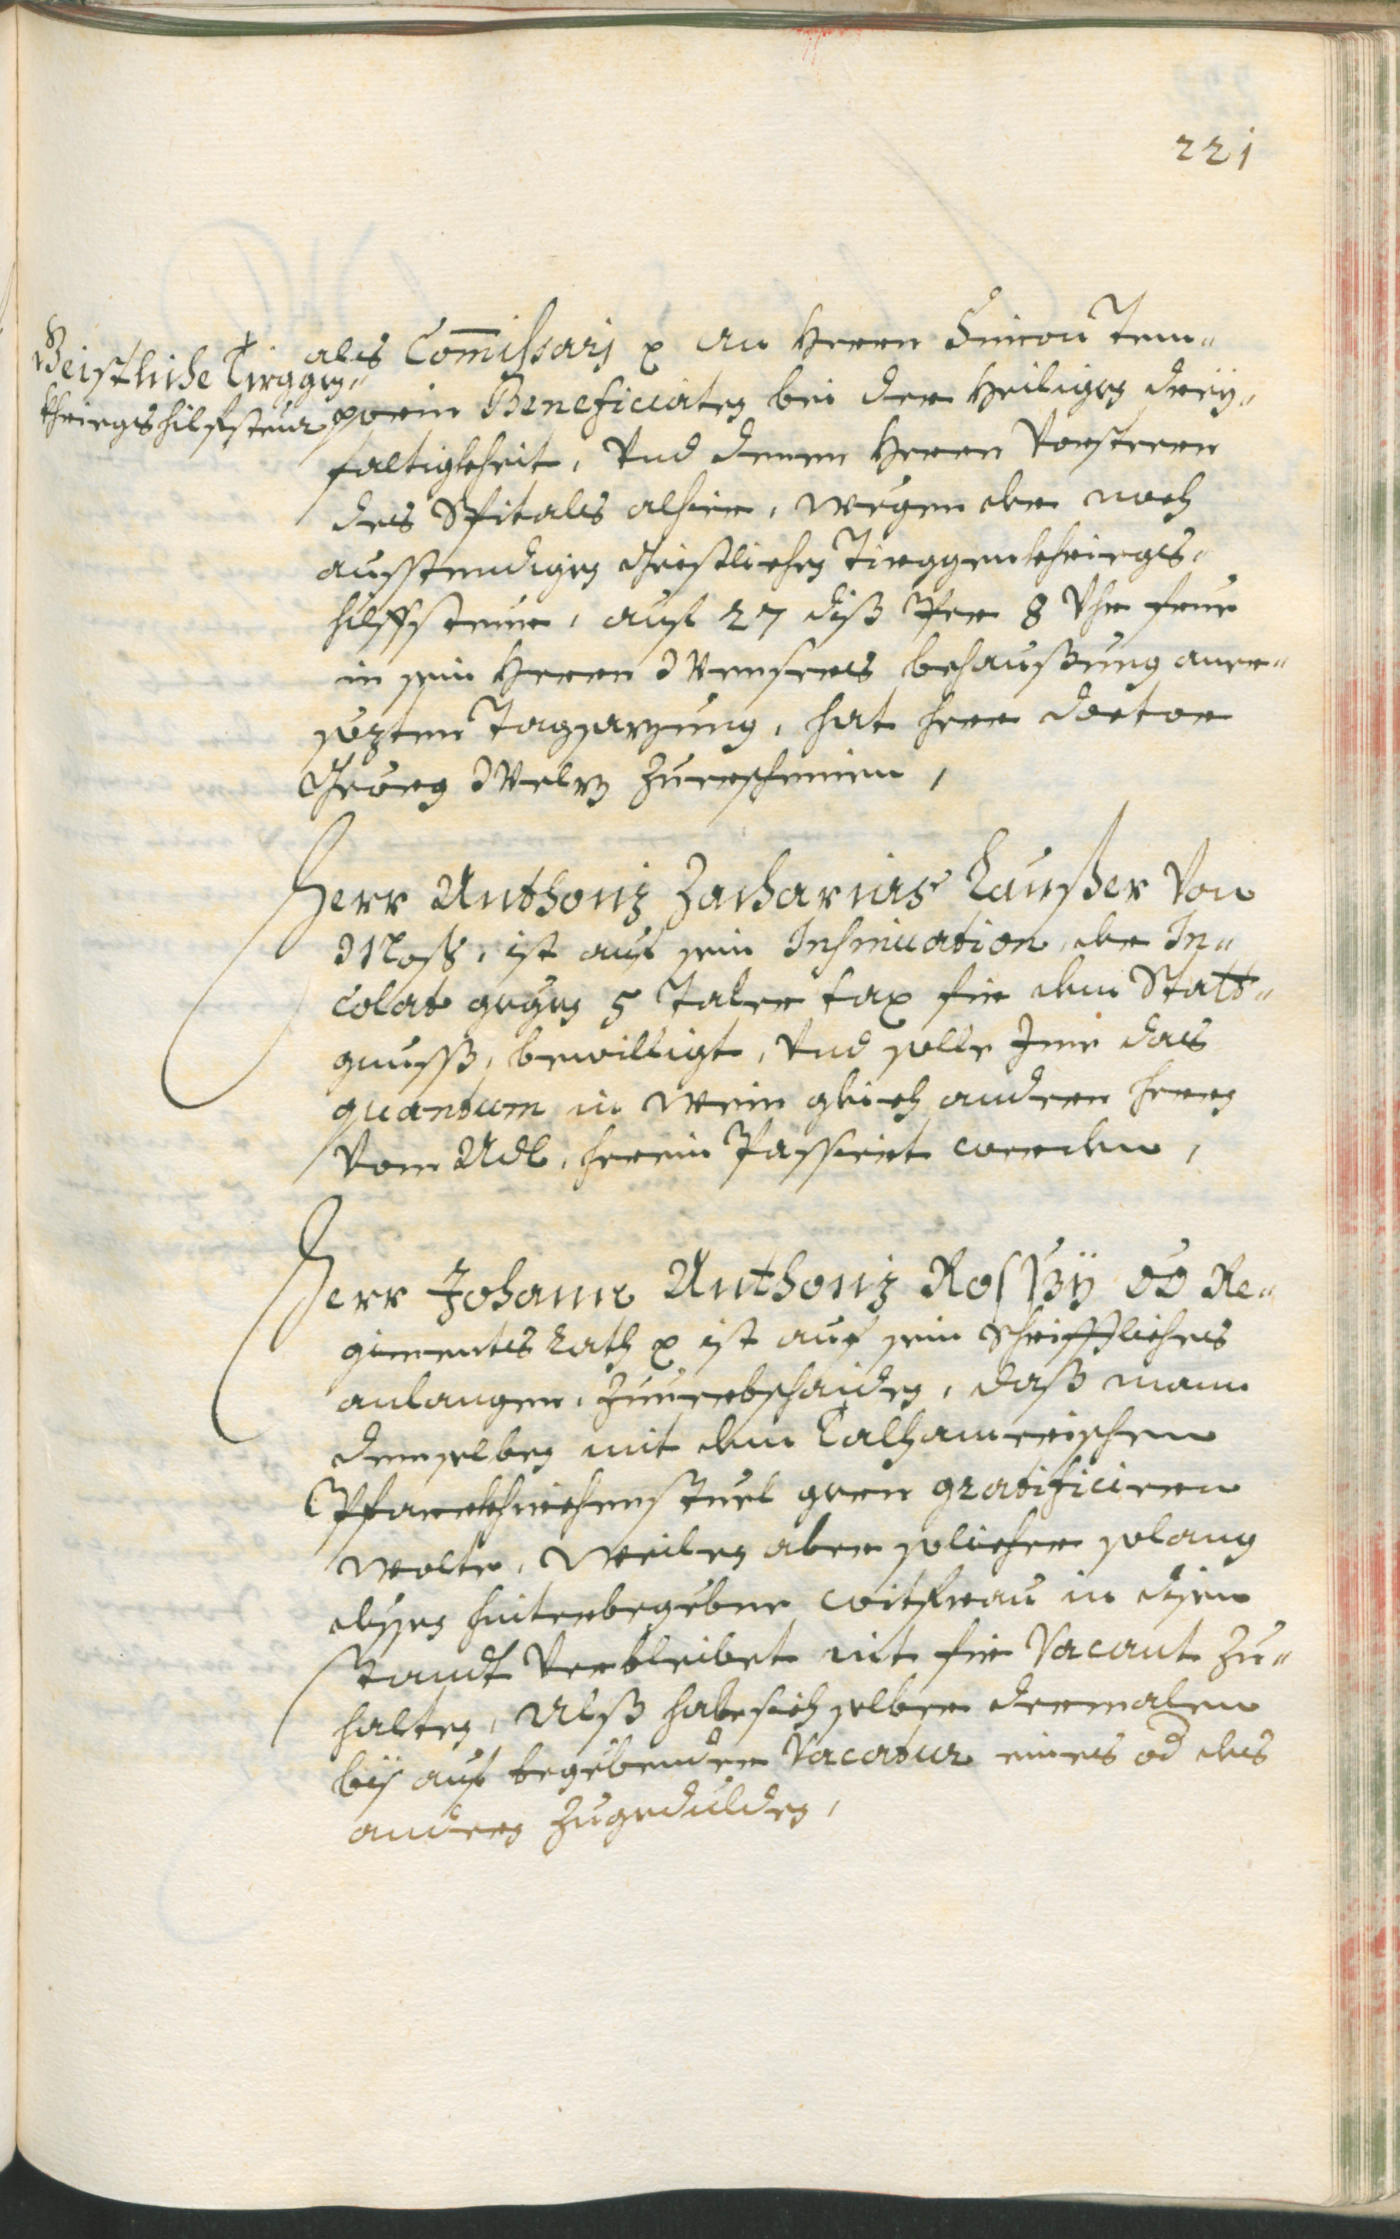 221
Geistliche Tirggen-
khriegshilfsteur
als Commissarj x an Herrn Simon Tem-
porin Beneficiaten bei der Heiligen Dreÿ-
faltigkheit, Vnd denen Herrn Vorsteern
des Spitals alhier, wegen der noch
ausstendigen Geistlichen Tirggenkhriegs-
hilffsteur, auf 27 diß Per 8 Vhr frue
in sein Herrn Wensers behaußung ange-
sezten Tagsazung, hat herr Doctor
Georg Welz zuerscheinen,
Herr Anthonj Zacharias Laußer Von
Moß, ist auf sein Insinuation, der In-
colat gegen 5 Taler tax für dem Statt-
gnuss, bewilligt, Vnd solle Ime das
quantum in wein gleich andern herrn
Vom Adl, herein Passiert werden,
Herr Johann Anthonj Rossÿ OÖ Re-
giments Rath x ist auf sein Schrifftliches
anlangen, zuuerbschaiden, daß mann
demselben mit dem Calhamerischen
Pfarrkhirchenstuel gern gratificiren
wolte, Weilen aber solicher solang
dessen hinterbegebne witfrau in disem
standt Verbleibet nit für Vacant zu-
halten, Alß habe sich selber dermalen
biß auf begebender Vacatur eines od des
andern zugedulden,